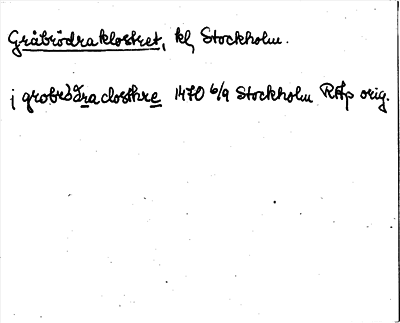 Gråbrödraklostret, kl, Stockholm.
j grobrödraclosthre 1470 6/9 Stockholm RAp orig.